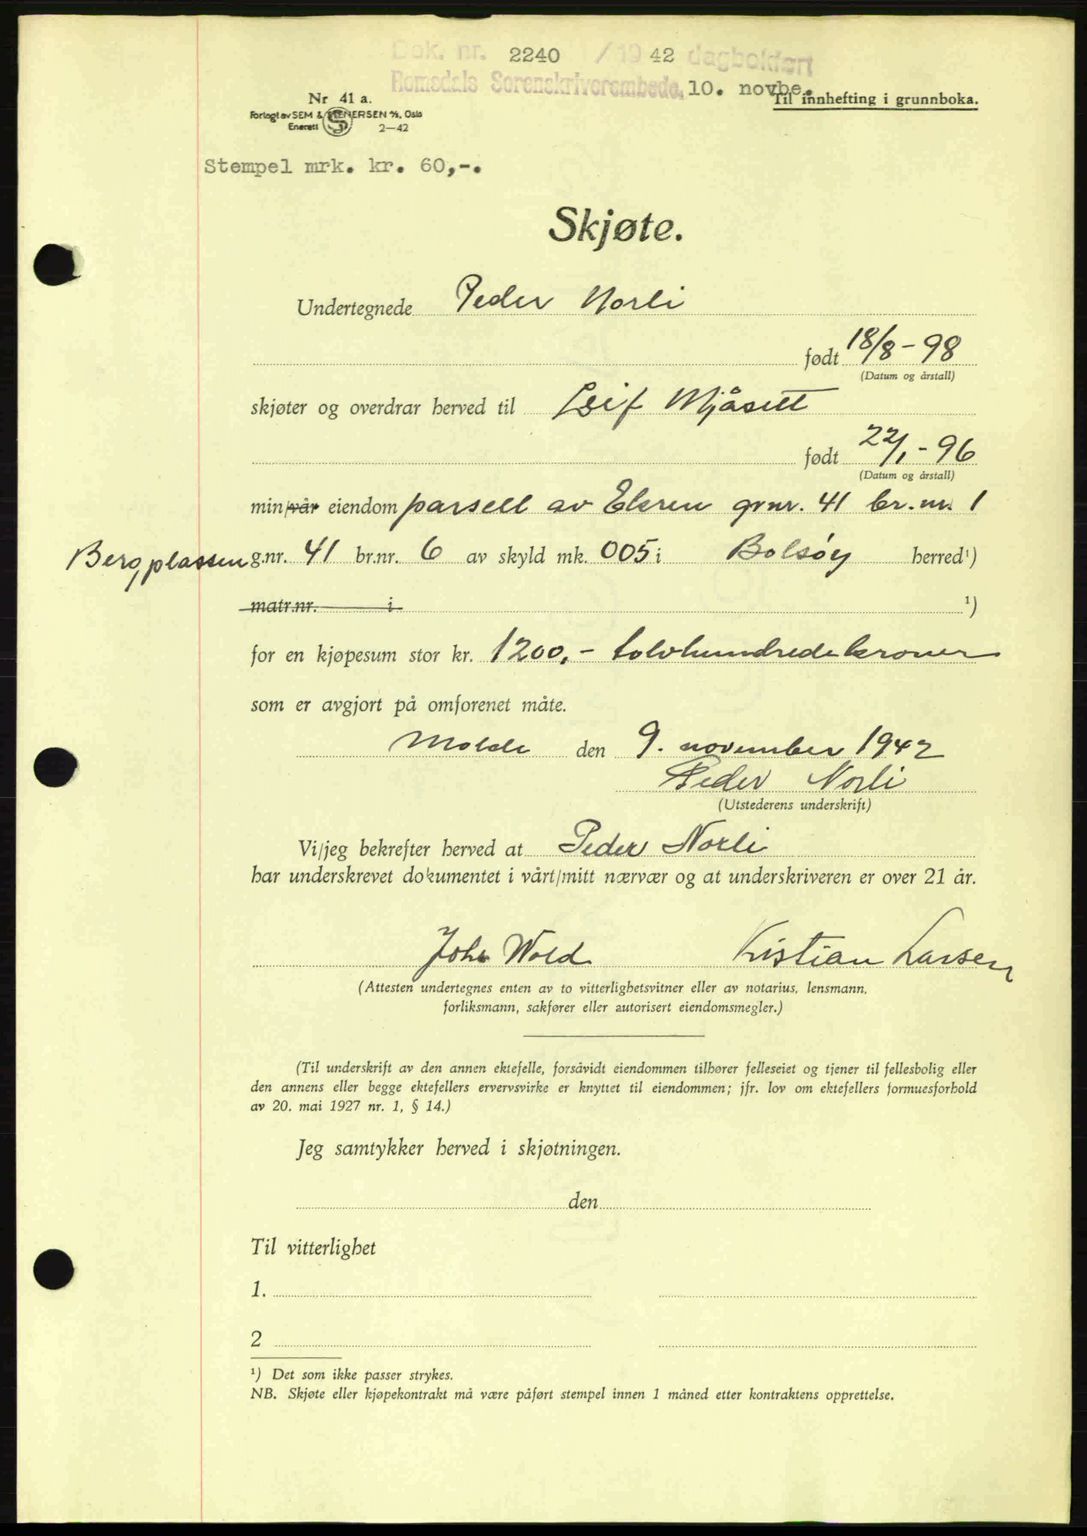 Dok. nr. 2240 / 1942 dagbokført
Romsdals Sorenskriverembede, 10. novbe.
Til innhefting i grunnboka.
Nr 41 a.
Forlagt av SEM & STENERSEN A/S, Oslo
Enerett 2—42
Stempel mrk. kr. 60,-.
Skjøte.
Undertegnede Peder Norli
født 18/8 - 98
(Datum og årstall)
skjøter og overdrar herved til Leif Mjåsett
født 22/1 - 96
(Datum og årstall)
min/vår eiendom parsell av Ekren gr.nr. 41 br.nr. 1
Bergplassen g.nr. 41 br.nr. 6 av skyld mk. 005 i Bolsøy herred¹)
matr.nr. i ¹)
for en kjøpesum stor kr. 1200,- tolvhundredekroner
som er avgjort på omforenet måte.
Molde den 9. november 1942
Peder Norli
(Utstederens underskrift)
Vi/jeg bekrefter herved at Peder Norli
har underskrevet dokumentet i vårt/mitt nærvær og at underskriveren er over 21 år.
John Wold Kristian Larsen
(Attesten undertegnes enten av to vitterlighetsvitner eller av notarius, lensmann,
forliksmann, sakfører eller autorisert eiendomsmegler.)
(Til underskrift av den annen ektefelle, forsåvidt eiendommen tilhører felleseiet og tjener til fellesbolig eller
den annens eller begge ektefellers ervervsvirke er knyttet til eiendommen; jfr. lov om ektefellers formuesforhold
av 20. mai 1927 nr. 1, § 14.)
Jeg samtykker herved i skjøtningen.
den
Til vitterlighet
1.
2
¹) Det som ikke passer strykes.
NB. Skjøte eller kjøpekontrakt må være påført stempel innen 1 måned etter kontraktens opprettelse.